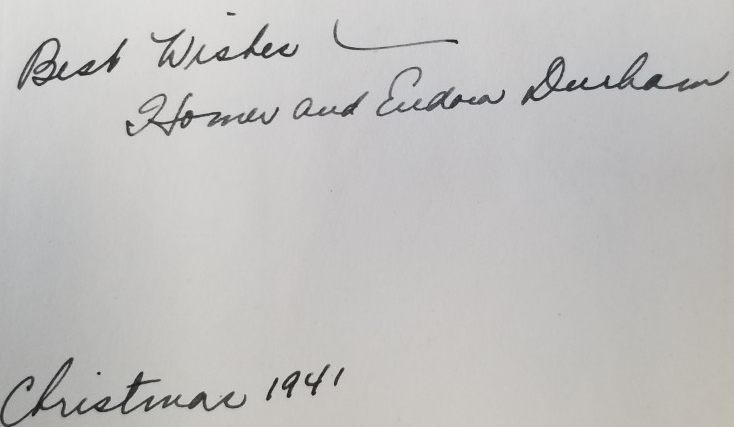 Best Wishes —
Homer and Eudora Durham
Christmas 1941